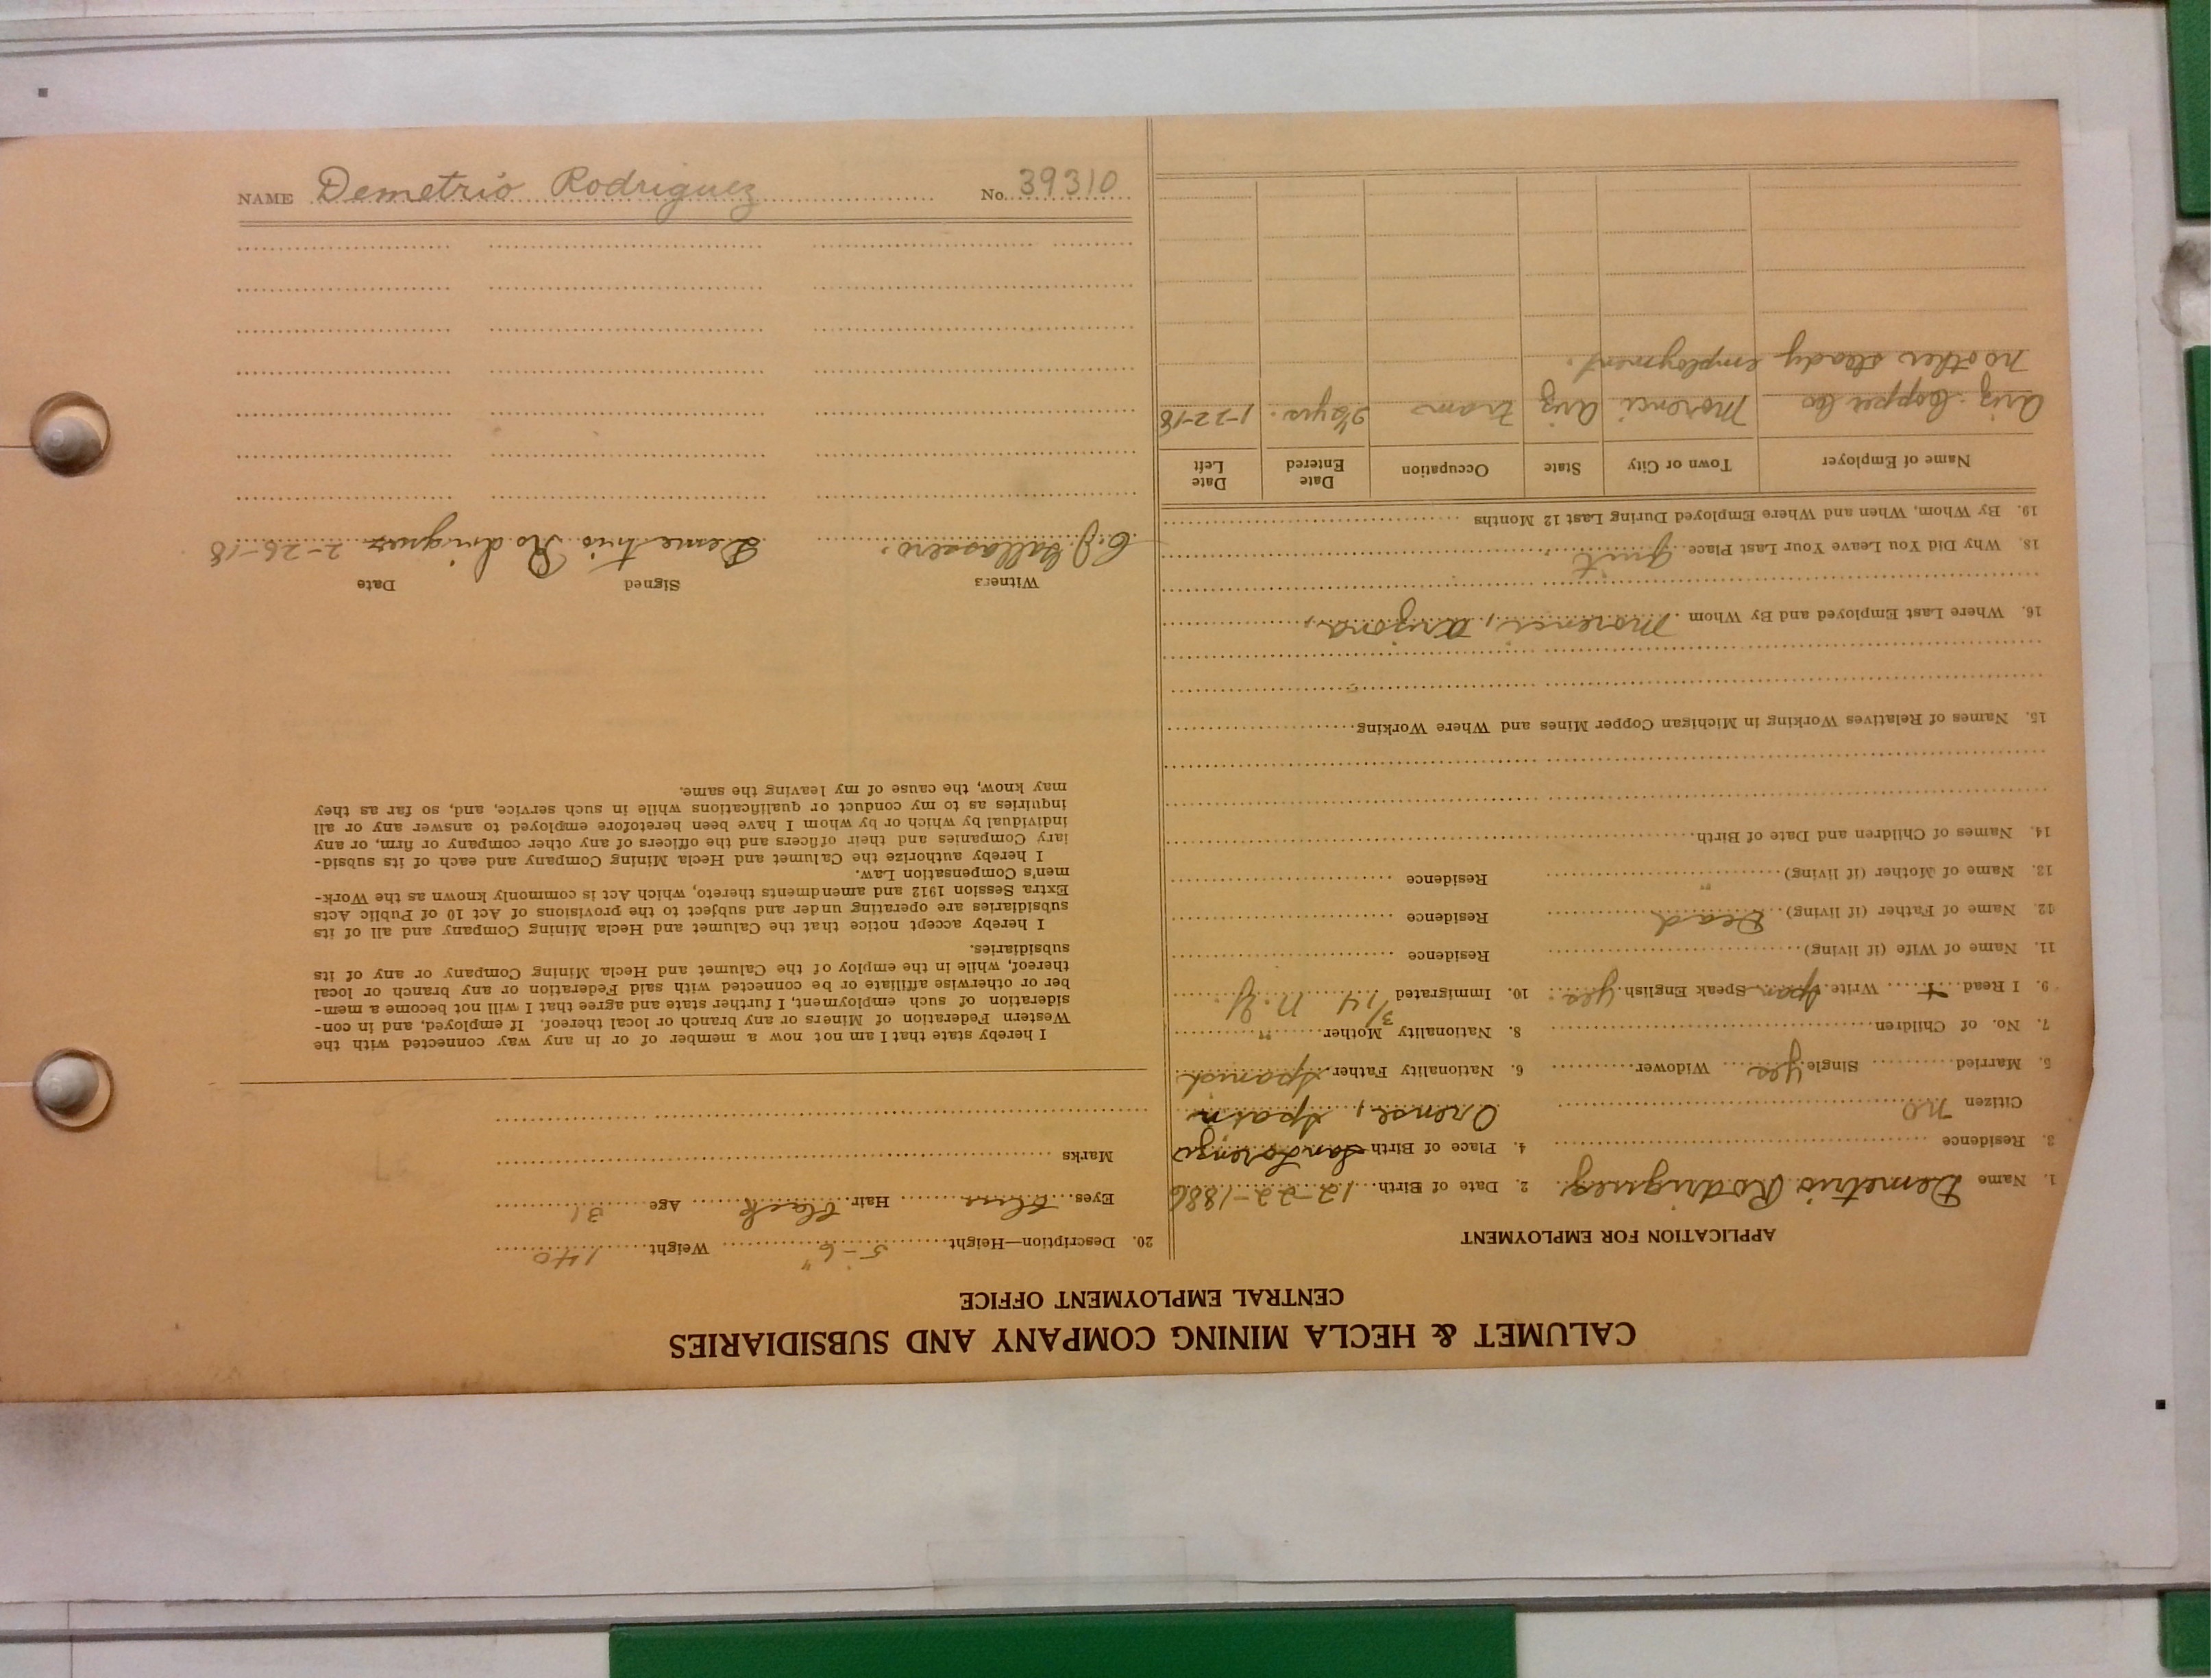 CALUMET & HECLA MINING COMPANY AND SUBSIDIARIES
CENTRAL EMPLOYMENT OFFICE
APPLICATION FOR EMPLOYMENT
1. Name Demetrio Rodriguez. 2. Date of Birth 12-22-1886
3. Residence 4. Place of Birth San Lorenzo
Citizen no Orense, Spain
5. Married Single yes Widower 6. Nationality Father Spanish
7. No. of Children 8. Nationality Mother "
9. I Read + Write Span Speak English yes. 10. Immigrated 3/14 N.Y.
11. Name of Wife (if living) Residence
12. Name of Father (if living) Dead Residence
13. Name of Mother (if living) " Residence
14. Names of Children and Date of Birth
15. Names of Relatives Working in Michigan Copper Mines and Where Working
16. Where Last Employed and By Whom Morenci, Arizona,
18. Why Did You Leave Your Last Place quit
19. By Whom, When and Where Employed During Last 12 Months
Name of Employer Town or City State Occupation Date Entered Date Left
Ariz. Copper Co Morenci Ariz tram 2½ yrs. 1-22-18
no other steady employment.
20. Description—Height 5-6" Weight 140
Eyes blue Hair black Age 31
Marks
I hereby state that I am not now a member of or in any way connected with the
Western Federation of Miners or any branch or local thereof. If employed, and in con-
sideration of such employment, I further state and agree that I will not become a mem-
ber or otherwise affiliate or be connected with said Federation or any branch or local
thereof, while in the employ of the Calumet and Hecla Mining Company or any of its
subsidiaries.
I hereby accept notice that the Calumet and Hecla Mining Company and all of its
subsidiaries are operating under and subject to the provisions of Act 10 of Public Acts
Extra Session 1912 and amendments thereto, which Act is commonly known as the Work-
men's Compensation Law.
I hereby authorize the Calumet and Hecla Mining Company and each of its subsid-
iary Companies and their officers and the officers of any other company or firm, or any
individual by which or by whom I have been heretofore employed to answer any or all
inquiries as to my conduct or qualifications while in such service, and, so far as they
may know, the cause of my leaving the same.
Witness Signed Date
C. J. Demetrio Rodriguez 2-26-18
NAME Demetrio Rodriguez No. 39310